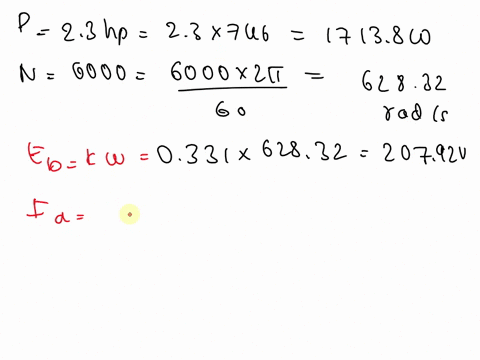 P = 2.3 hp = 2.3 × 746 = 1713.8 W
N = 6000 = 6000 × 2π / 60 = 628.32 rad/s
E_b = k ω = 0.331 × 628.32 = 207.92 V
I_a =